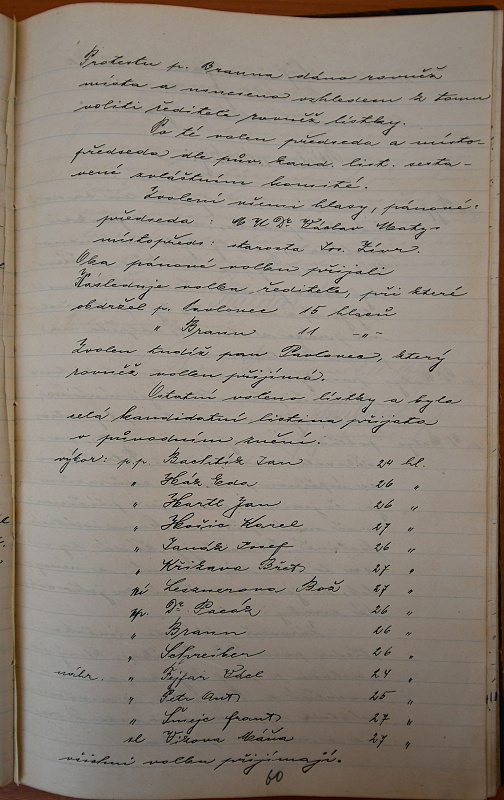 Protestu p. Brauna dáno rovněž
místa a usneseno vzhledem k tomu
voliti ředitele rovněž lístky.
Po té volen předseda a místo-
předseda dle pův. kand. list. sesta-
vené zvláštním komité.
Zvoleni všemi hlasy, pánové:
předseda: MUDr Václav Matys
místopředs: starosta Jos. Zívr
Oba pánové volbu přijali
Následuje volba ředitele, při které
obdržel p. Pavlovec 15 hlasů
" Braun 11 -"-
Zvolen tudíž pan Pavlovec, který
rovněž volbu přijímá.
Ostatní voleno lístky a byla
celá kandidátní listina přijata
v původním znění.
výbor: p.p. Jan 24 hl.
" Eda 26 "
" Hartl Jan 26 "
" Karel 27 "
" Josef 26 "
" Křižava Břet 27 "
ní Lesznerova Bož 27 "
pp. Dr. Pacák 26 "
" Braun 26 "
" Schreiber 26 "
náhr. " Fejfar 24 "
" Petr Ant 25 "
" Šmejc Frant 27 "
sl Máňa 27 "
všichni volbu přijímají.
60